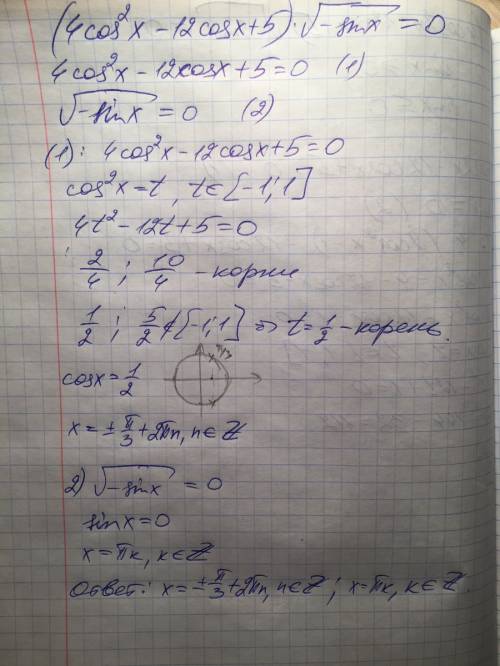 (4cos²x - 12cosx + 5)·√(-sinx) = 0
4cos²x - 12cosx + 5 = 0 (1)
√(-sinx) = 0 (2)
(1): 4cos²x - 12cosx + 5 = 0
cos²x = t, t∈[-1;1]
4t² - 12t + 5 = 0
2/4 ; 10/4 - корни
1/2 ; 5/2 ∉ [-1;1] => t = 1/2 - корень.
π/3
cosx = 1/2
x = ±π/3 + 2πn, n∈Z
2) √(-sinx) = 0
sinx = 0
x = πk, k∈Z
Ответ: x = ±π/3 + 2πn, n∈Z ; x = πk, k∈Z.